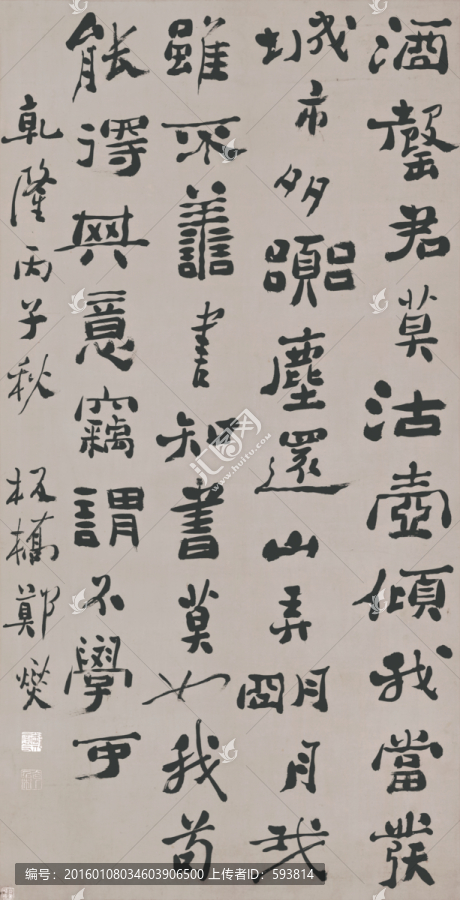 酒罄君莫沽壺傾我當發
城市多囂塵還山弄朙月我
雖不善書知書莫如我苟
能得其意竊謂不學可
乾隆丙子秋 板橋鄭燮
www.huitu.com
编号：20160108034603906500 上传者ID：593814